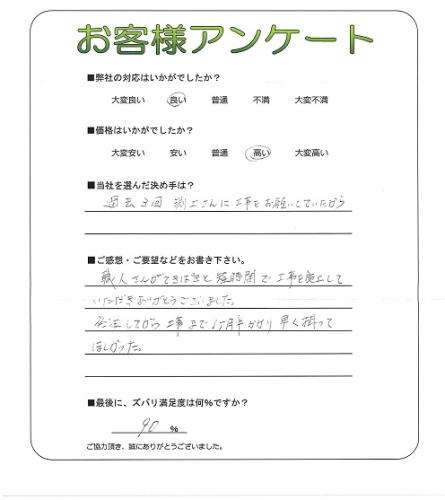 お客様アンケート
■弊社の対応はいかがでしたか？
大変良い 良い 普通 不満 大変不満
■価格はいかがでしたか？
大変安い 安い 普通 高い 大変高い
■当社を選んだ決め手は？
過去3回 渕上さんに工事をお願いしていたから
■ご感想・ご要望などをお書き下さい。
職人さんがてきぱきと短時間で工事を完工して
いただきありがとうございました。
発注してから工事まで1ヶ月半かかり早く掛って
ほしかった。
■最後に、ズバリ満足度は何％ですか？
90 ％
ご協力頂き、誠にありがとうございました。